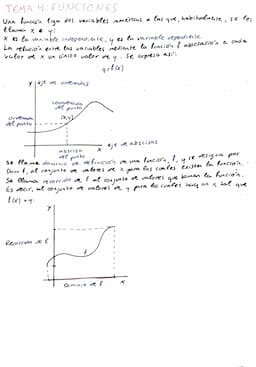 TEMA 4: FUNCIONES
Una función liga dos variables numéricas a las que, habitualmente, se les
llama x e y:
x es la variable independiente, y es la variable dependiente.
La relación entre las variables mediante la función f asociación a cada
valor de x un único valor de y. Se expresa así:
y=f(x)
Y eje de ordenadas
coordenadas
del punto
ordenada
del punto
(x,y)
X eje de abscisas
abscisa
del punto
Se llama dominio de definición de una función, f, y se designa por
Dom f, al conjunto de valores de x para los cuales existen la función.
Se llama recorrido de f al conjunto de valores que toman la función.
Es decir, al conjunto de valores de y para los cuales hay un x tal que
f(x)=y.
Y
Recorrido de f
Dominio de f
X